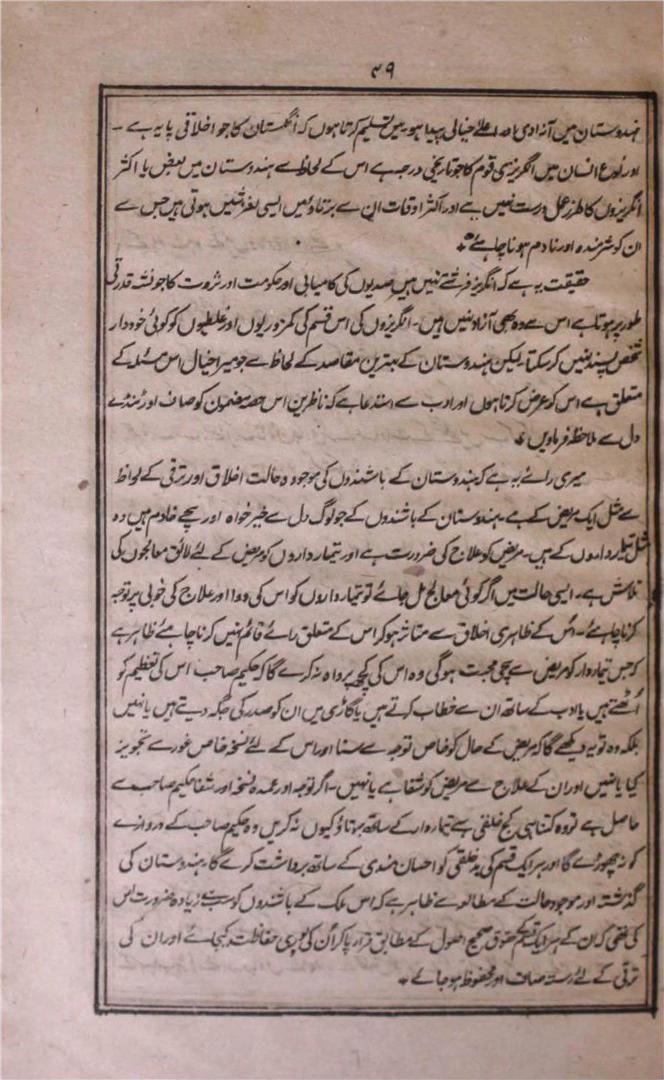 ۴۹
ہندوستان میں آزادی اور اعلیٰ خیالی پیدا ہو۔ میں تسلیم کرتا ہوں کہ انگلستان کا جو اخلاقی پایہ ہے -
اور نوع انسان میں انگریزی قوم کا جو تاریخی درجہ ہے اس کے لحاظ سے ہندوستان میں بعض یا اکثر
انگریزوں کا طرز عمل درست نہیں ہے اور اکثر اوقات ان سے برتاؤ میں ایسی لغزشیں ہوتی ہیں جس سے
ان کو شرمندہ اور نادم ہونا چاہئے۔
حقیقت یہ ہے کہ انگریز فرشتے نہیں ہیں صدیوں کی کامیابی اور حکومت اور ثروت کا جو نشہ قدرتی
طور پر ہوتا ہے اس سے وہ بھی آزاد نہیں ہیں - انگریزوں کی اس قسم کی کمزوریوں اور غلطیوں کو کوئی خوددار
شخص پسند نہیں کر سکتا لیکن ہندوستان کے بہترین مقاصد کے لحاظ سے جو میرا خیال اس مسئلہ کے
متعلق ہے اس کو عرض کرتا ہوں اور ادب سے استدعا ہے کہ ناظرین اس حصہ مضمون کو صاف اور ٹھنڈے
دل سے ملاحظہ فرماویں۔
میری رائے یہ ہے کہ ہندوستان کے باشندوں کی موجودہ حالت اخلاق اور ترقی کے لحاظ
سے مثل ایک مریض کے ہے - ہندوستان کے باشندوں کے جو لوگ دل سے خیر خواہ اور سچے خادم ہیں وہ
مثل تیمارداروں کے ہیں - مریض کو علاج کی ضرورت ہے اور تیمارداروں کو مریض کے لئے لائق معالجوں کی
تلاش ہے - ایسی حالت میں اگر کوئی معالج مل جائے تو تیمارداروں کو اس کی دوا اور علاج کی خوبی پر توجہ
کرنا چاہئے - اس کے ظاہری اخلاق سے متاثر ہو کر اس کے متعلق رائے قائم نہیں کرنا چاہئے ظاہر ہے
کہ جس تیماردار کو مریض سے سچی محبت ہوگی وہ اس کی کچھ پرواہ نہ کرے گا کہ حکیم صاحب اس کی تعظیم کو
اُٹھتے ہیں یا ادب کے ساتھ ان سے خطاب کرتے ہیں یا گاڑی میں ان کو صدر کی جگہ دیتے ہیں یا نہیں
بلکہ وہ تو یہ دیکھے گا کہ مریض کے حال کو خاص توجہ سے سنا اور اس کے لئے نسخہ خاص غور سے تجویز
کیا یا نہیں اور ان کے علاج سے مریض کو شفا ہے یا نہیں - اگر توجہ اور عمدہ نسخہ اور شفا حکیم صاحب سے
حاصل ہے تو وہ کتنا ہی کج خلقی سے تیماردار کے ساتھ برتاؤ کیوں نہ کریں وہ حکیم صاحب کے دروازے
کو نہ چھوڑے گا اور ہر ایک قسم کی بدخلقی کو احسان مندی کے ساتھ برداشت کرے گا ہندوستان کی
گذشتہ اور موجودہ حالت کے مطالعہ سے ظاہر ہے کہ اس ملک کے باشندوں کو سب سے زیادہ ضرورت اس
کی تھی کہ ان کے ہر ایک قسم کے حقوق صحیح اصول کے مطابق قرار پا کر ان کی پوری حفاظت کی جائے اور ان کی
ترقی کے لئے رستہ صاف اور محفوظ ہو جائے -